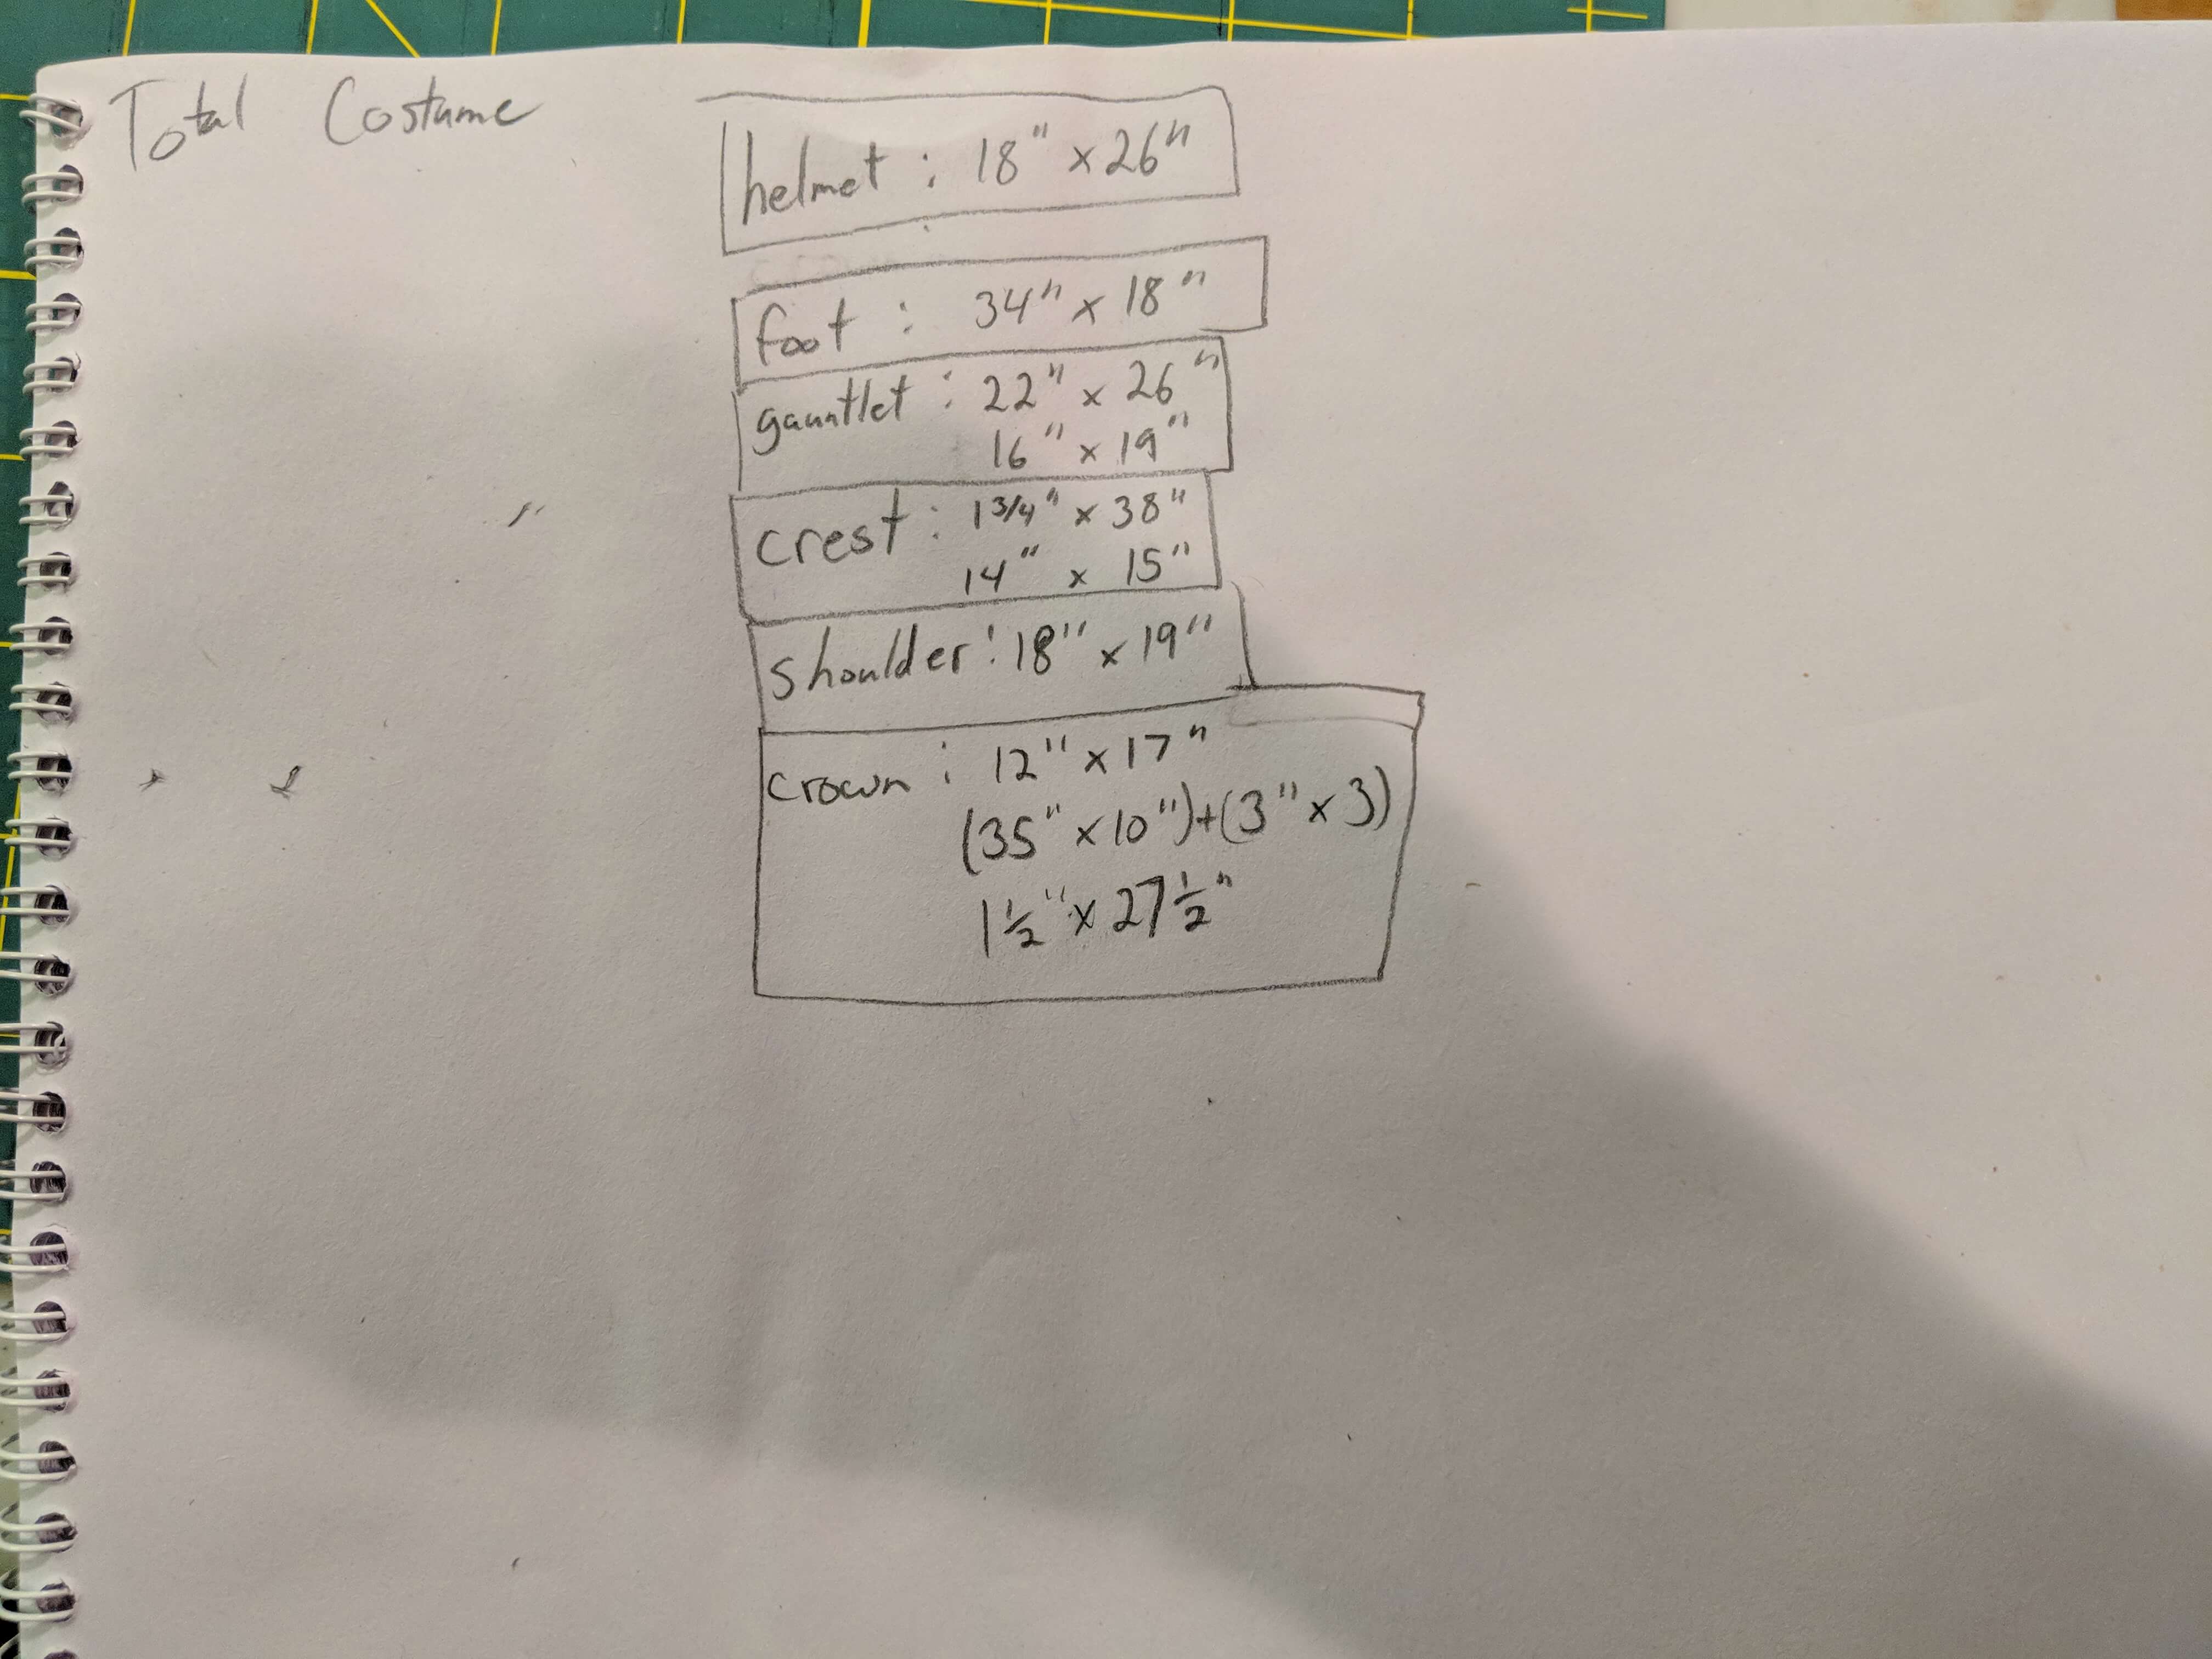 Total Costume
helmet : 18" x 26"
foot : 34" x 18"
gauntlet : 22" x 26"
16" x 19"
crest : 1 3/4" x 38"
14" x 15"
shoulder : 18" x 19"
crown : 12" x 17"
(35" x 10") + (3" x 3)
1 1/2" x 27 1/2"